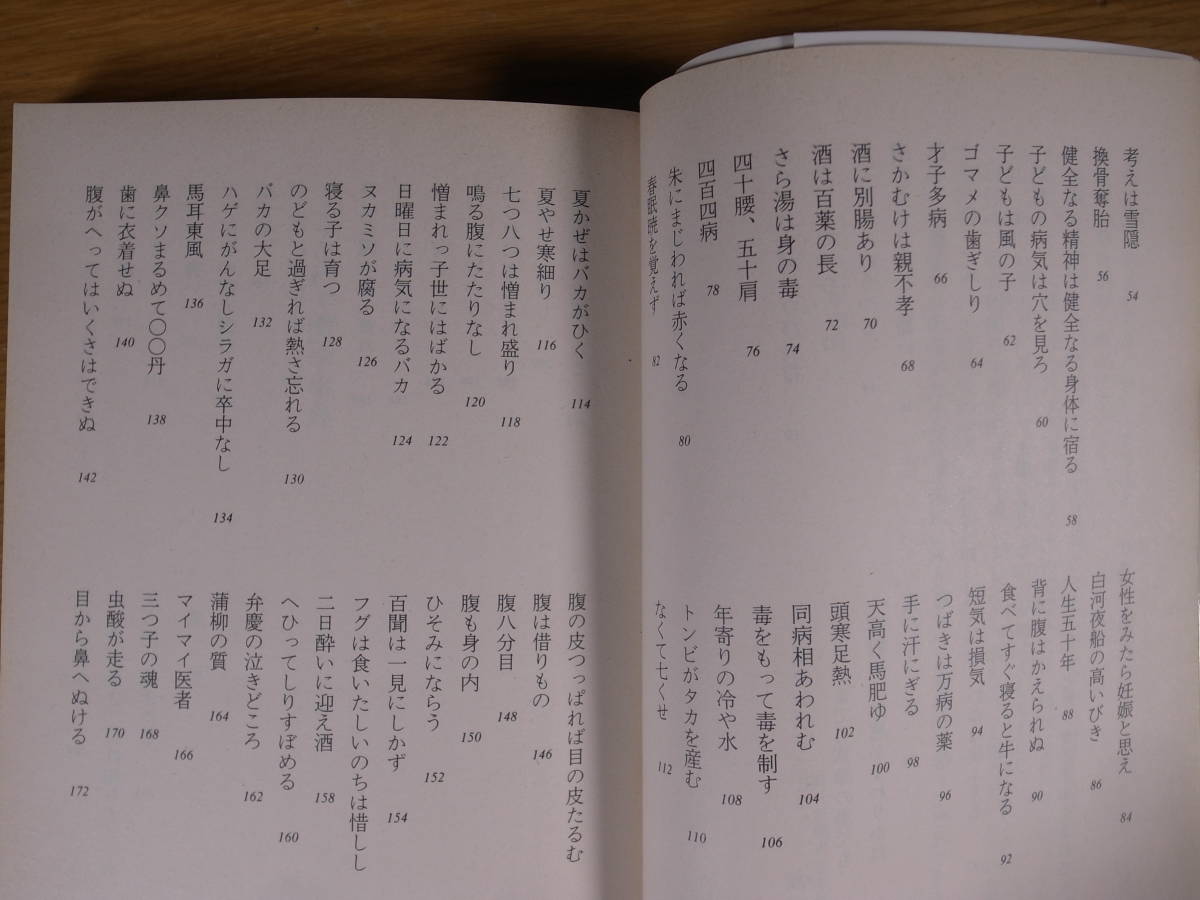 考えは雪隠 54
換骨奪胎 56
健全なる精神は健全なる身体に宿る 58
子どもの病気は穴を見ろ 60
子どもは風の子 62
ゴマメの歯ぎしり 64
才子多病 66
さかむけは親不孝 68
酒に別腸あり 70
酒は百薬の長 72
さら湯は身の毒 74
四十腰、五十肩 76
四百四病 78
朱にまじわれば赤くなる 80
春眠暁を覚えず 82
女性をみたら妊娠と思え 84
白河夜船の高いびき 86
人生五十年 88
背に腹はかえられぬ 90
食べてすぐ寝ると牛になる 92
短気は損気 94
つばきは万病の薬 96
手に汗にぎる 98
天高く馬肥ゆ 100
頭寒足熱 102
同病相あわれむ 104
毒をもって毒を制す 106
年寄りの冷や水 108
トンビがタカを産む 110
なくて七くせ 112
夏かぜはバカがひく 114
夏やせ寒細り 116
七つ八つは憎まれ盛り 118
鳴る腹にたたりなし 120
憎まれっ子世にはばかる 122
日曜日に病気になるバカ 124
ヌカミソが腐る 126
寝る子は育つ 128
のどもと過ぎれば熱さ忘れる 130
バカの大足 132
ハゲにがんなしシラガに卒中なし 134
馬耳東風 136
鼻クソまるめて〇〇丹 138
歯に衣着せぬ 140
腹がへってはいくさはできぬ 142
腹の皮つっぱれば目の皮たるむ
腹は借りもの 146
腹八分目 148
腹も身の内 150
ひそみにならう 152
百聞は一見にしかず 154
フグは食いたしいのちは惜しし
二日酔いに迎え酒 158
へひってしりすぼめる 160
弁慶の泣きどころ 162
蒲柳の質 164
マイマイ医者 166
三つ子の魂 168
虫酸が走る 170
目から鼻へぬける 172